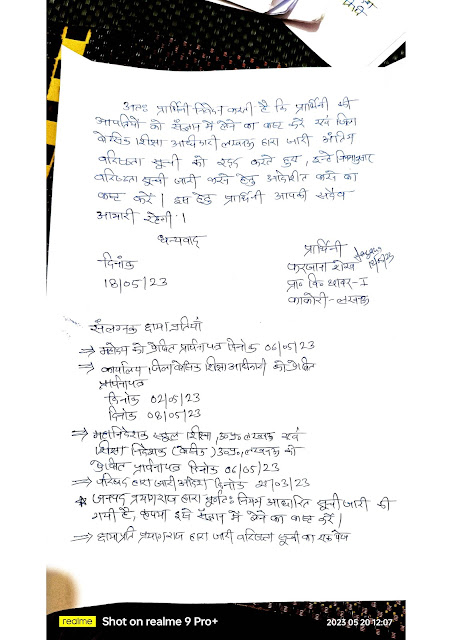 अतः प्रार्थिनी निवेदन करती है कि प्रार्थिनी की
आपत्तियों को संज्ञान में लेने का कष्ट करें एवं जिला
बेसिक शिक्षा अधिकारी लखनऊ द्वारा जारी अंतिम
वरिष्ठता सूची को रद्द करते हुए, इसे नियमानुसार
वरिष्ठता सूची जारी करने हेतु आदेशित करने का
कष्ट करें। इस हेतु प्रार्थिनी आपकी सदैव
आभारी रहेगी।
धन्यवाद
दिनांक
18/05/23
प्रार्थिनी
फरजाना शेख
प्रा० वि० थावर-I
काकोरी-लखनऊ
संलग्नक छायाप्रतियाँ
⇒ महोदय को प्रेषित प्रार्थनापत्र दिनांक 06/05/23
⇒ कार्यालय, जिला बेसिक शिक्षा अधिकारी को प्रेषित
प्रार्थनापत्र
दिनांक 02/05/23
दिनांक 08/05/23
⇒ महानिदेशक स्कूल शिक्षा, उ०प्र० लखनऊ एवं
शिक्षा निदेशक (बेसिक) उ०प्र०, लखनऊ को
प्रेषित प्रार्थनापत्र दिनांक 06/05/23
⇒ परिषद द्वारा जारी आदेश दिनांक /03/23
* जनपद प्रयागराज द्वारा पूर्णतः नियम आधारित सूची जारी की
गयी है, कृपया इसे संज्ञान में लेने का कष्ट करें।
⇒ छायाप्रति प्रयागराज द्वारा जारी वरिष्ठता सूची का एक पेज
realme Shot on realme 9 Pro+ 2023 05 20 12:07